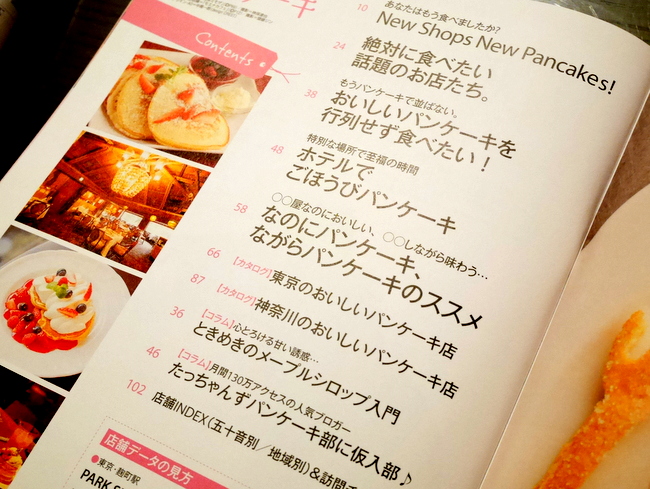 ーキ
Contents
10
あなたはもう食べましたか?
New Shops New Pancakes!
24
絶対に食べたい
話題のお店たち。
38
もうパンケーキで並ばない。
おいしいパンケーキを
行列せず食べたい!
48
特別な場所で至福の時間
ホテルで
ごほうびパンケーキ
58
○○屋なのにおいしい、○○しながら味わう…
なのにパンケーキ、
ながらパンケーキのススメ
66
【カタログ】東京のおいしいパンケーキ店
87
【カタログ】神奈川のおいしいパンケーキ店
36
【コラム】心とろける甘い誘惑…
ときめきのメープルシロップ入門
46
【コラム】月間130万アクセスの人気ブロガー
たっちゃんずパンケーキ部に仮入部♪
102
店舗INDEX(五十音別/地域別)&訪問
店舗データの見方
●東京・麹町駅
PARK